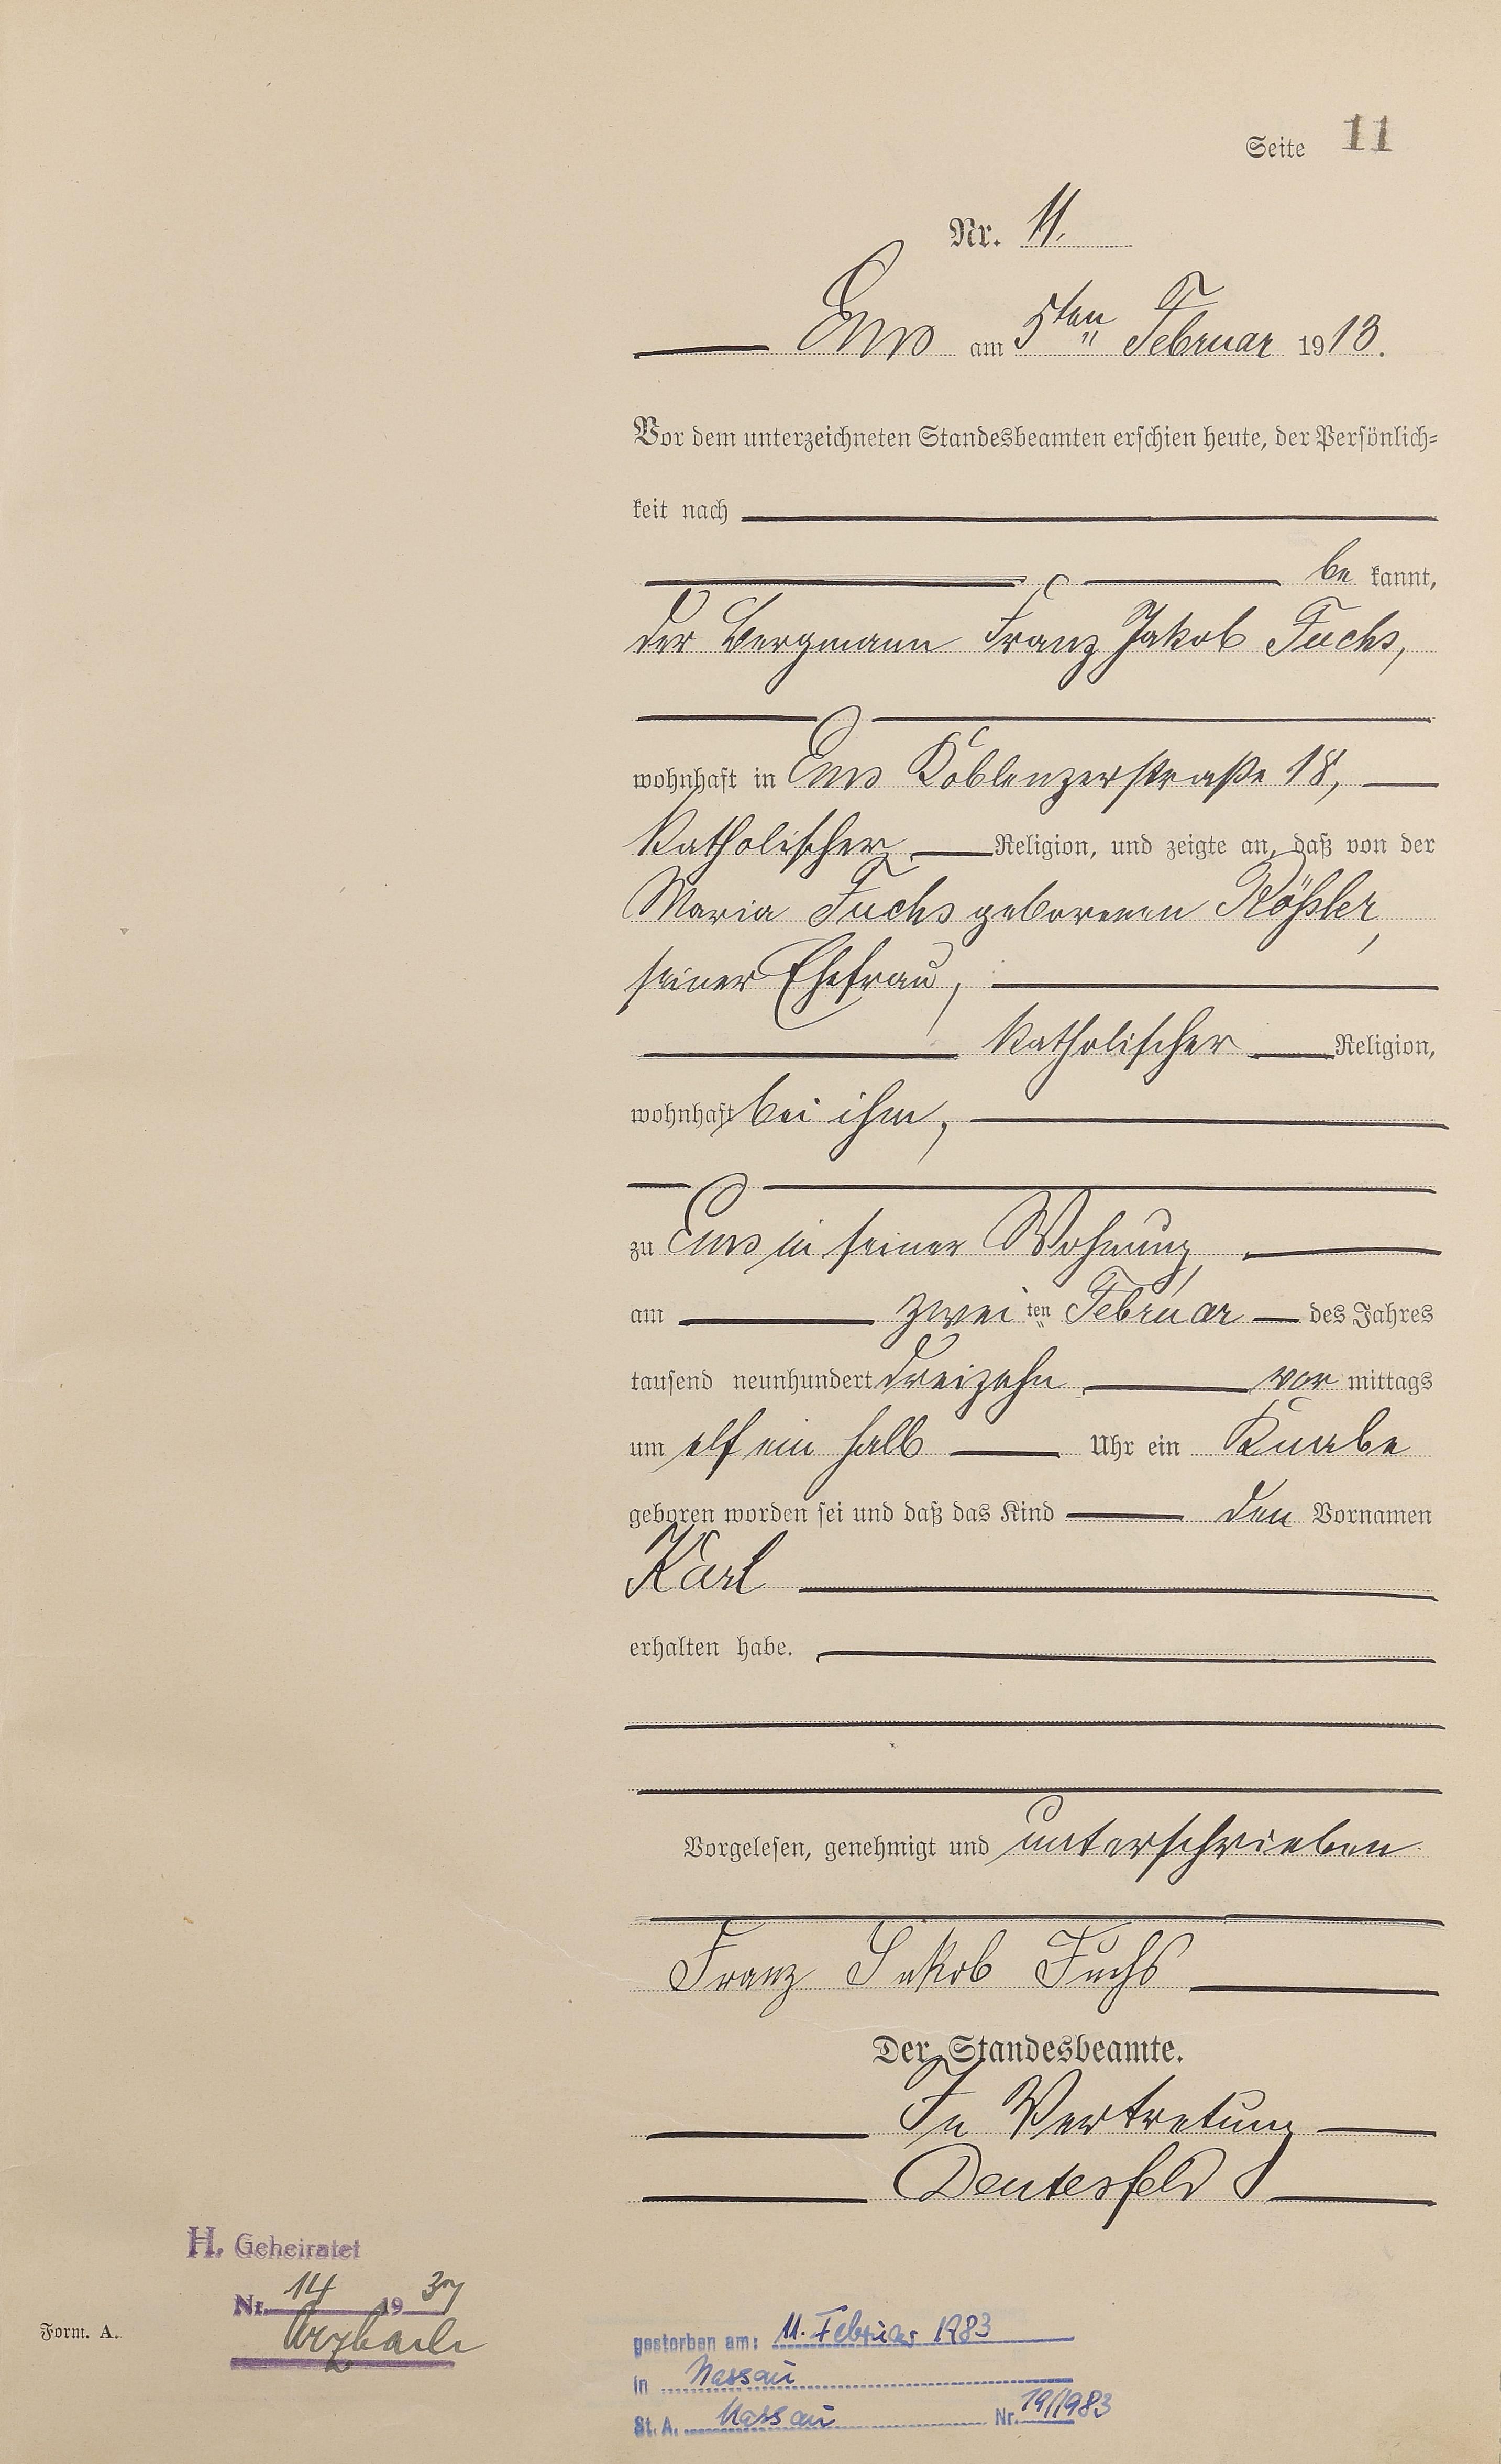 Seite 11
Nr. 11.
Ems am 5ten Februar 1913.
Vor dem unterzeichneten Standesbeamten erschien heute, der Persönlich-
keit nach
be kannt,
der Bergmann Franz Jakob Fuchs,
wohnhaft in Ems Koblenzerstraße 18,
katholischer Religion, und zeigte an, daß von der
Maria Fuchs geborenen Rößler,
seiner Ehefrau,
katholischer Religion,
wohnhaft bei ihm,
zu Ems in seiner Wohnung,
am zwei ten Februar des Jahres
tausend neunhundert dreizehn vor mittags
um elf ein halb Uhr ein Knabe
geboren worden sei und daß das Kind den Vornamen
Karl
erhalten habe.
Vorgelesen, genehmigt und unterschrieben
Franz Jakob Fuchs
Der Standesbeamte.
In Vertretung
Deutesfeld
H. Geheiratet
Nr. 14 1937
Arzbach
Form. A.
gestorben am: 11. Februar 1983
in Nassau
St. A. Nassau Nr. 19/1983